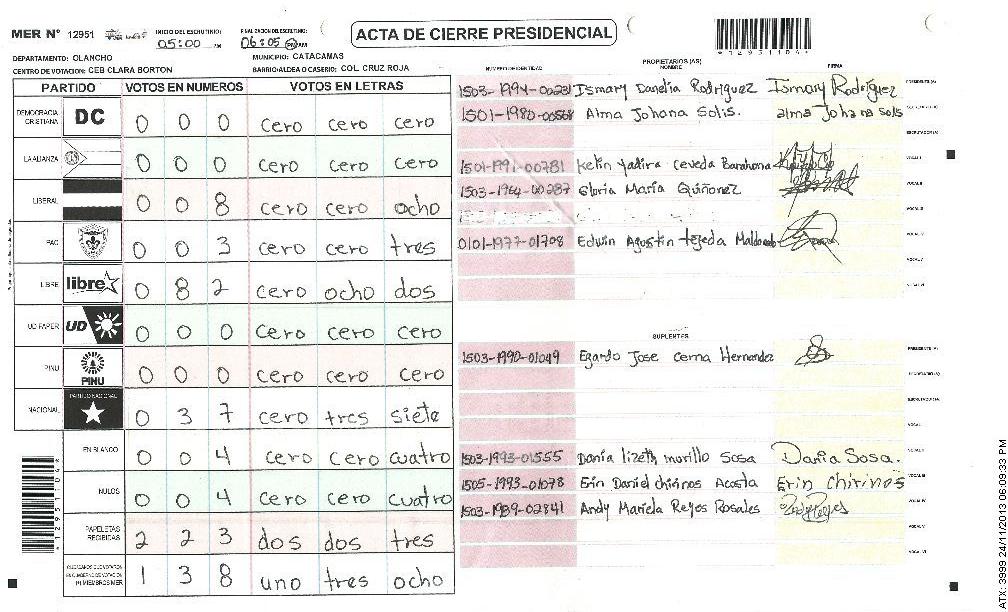 MER N° 12951
INICIO DEL ESCRUTINIO:
05:00 AM
FINALIZACION DEL ESCRUTINIO:
06:05 PM AM
ACTA DE CIERRE PRESIDENCIAL
*12951104*
DEPARTAMENTO: OLANCHO
MUNICIPIO: CATACAMAS
CENTRO DE VOTACION: CEB CLARA BORTON
BARRIO/ALDEA O CASERIO: COL. CRUZ ROJA
PARTIDO VOTOS EN NUMEROS VOTOS EN LETRAS
DEMOCRACIA CRISTIANA DC 0 0 0 cero cero cero
LA ALIANZA 0 0 0 cero cero cero
LIBERAL 0 0 8 cero cero ocho
PAC 0 0 3 cero cero tres
LIBRE libre 0 8 2 cero ocho dos
UD FAPER UD 0 0 0 cero cero cero
PINU PINU 0 0 0 cero cero cero
NACIONAL PARTIDO NACIONAL 0 3 7 cero tres siete
EN BLANCO 0 0 4 cero cero cuatro
NULOS 0 0 4 cero cero cuatro
PAPELETAS RECIBIDAS 2 2 3 dos dos tres
1 3 8 uno tres ocho
PROPIETARIOS (AS)
NUMERO DE IDENTIDAD NOMBRE FIRMA
1503-1994-00231 Ismary Danelia Rodriguez Ismary Rodríguez PRESIDENTE (A)
1501-1980-00568 Alma Johana Solis. alma Johana solis
ESCRUTADOR (A)
1501-1991-00781 Kelin Yadira Ceveda Barahona VOCAL I
1503-1964-00287 Gloria María Quiñonez VOCAL II
VOCAL III
0101-1977-01708 Edwin Agustin tejeda Maldonado VOCAL IV
VOCAL V
VOCAL VI
SUPLENTES
1503-1990-01049 Egardo Jose Cerna Hernandez PRESIDENTE (A)
SECRETARIO (A)
ESCRUTADOR (A)
VOCAL I
1503-1993-01555 Dania lizeth murillo Sosa Dania Sosa. VOCAL II
1505-1993-01078 Erin Daniel chirinos Acosta Erin chirinos VOCAL III
1503-1989-02841 Andy Mariela Reyes Rosales VOCAL IV
VOCAL V
VOCAL VI
*12951104*
ATX: 3999 24/11/2013 06:09:33 PM